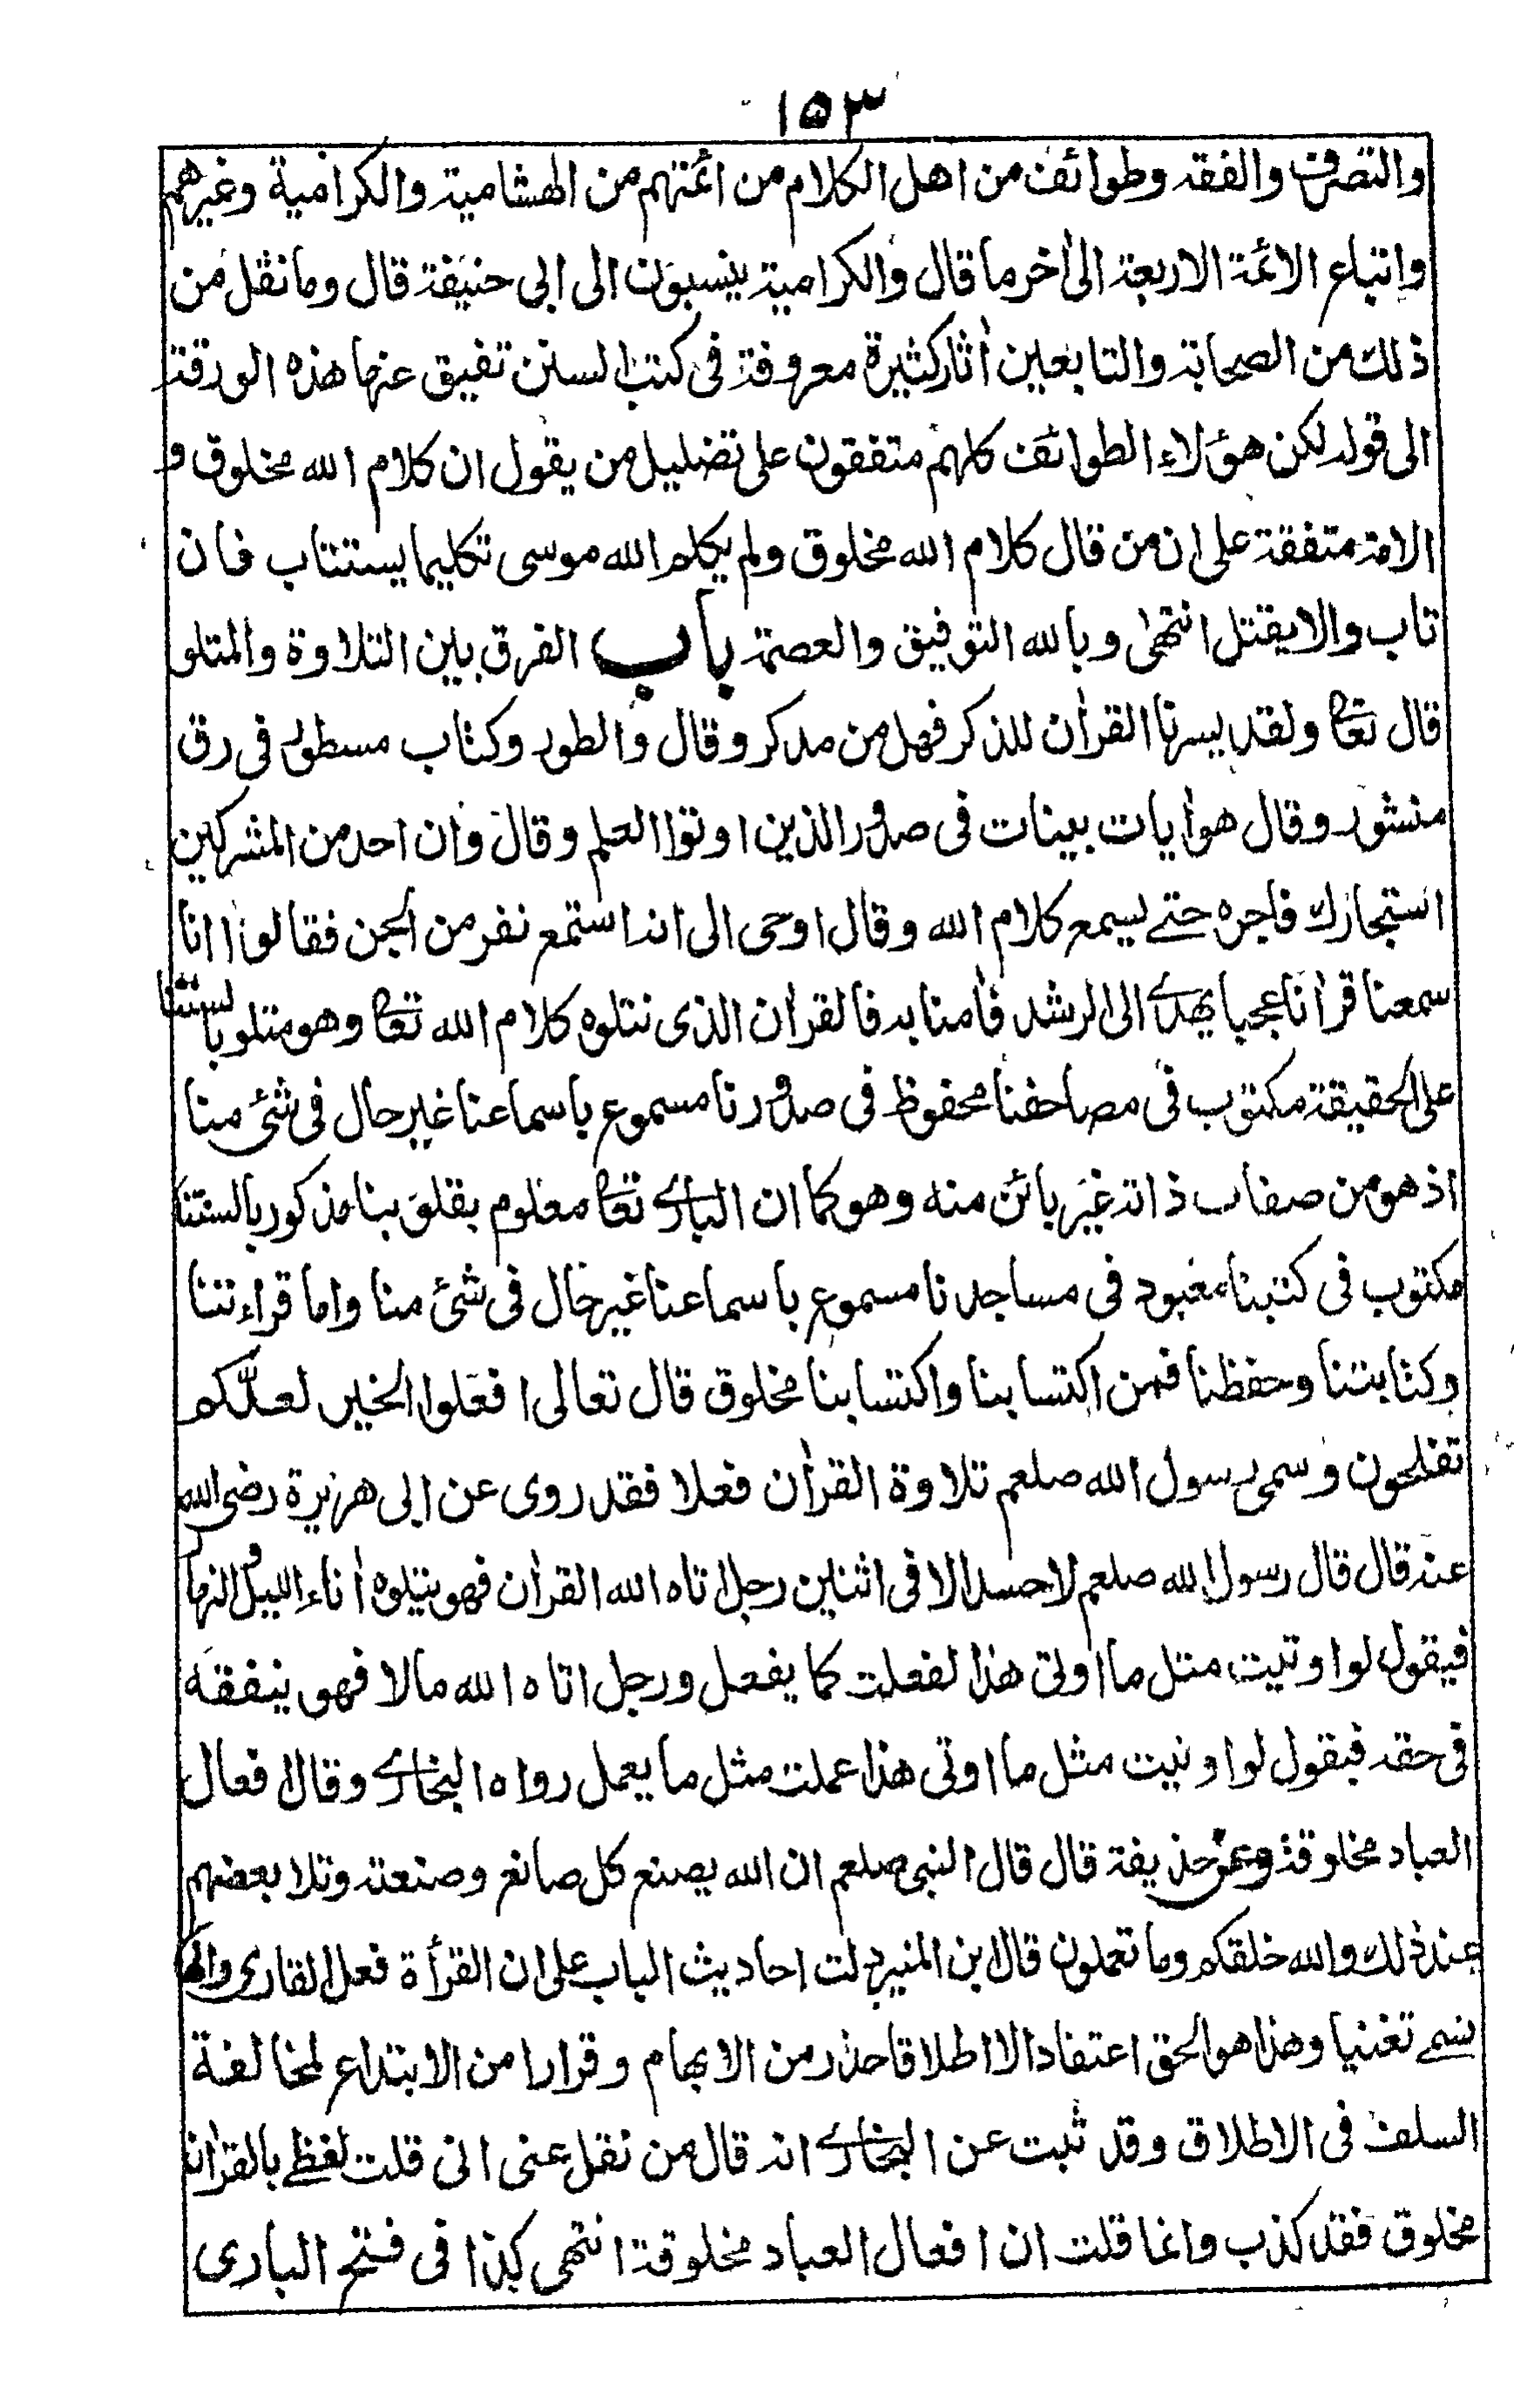 ١٥٣
والتصوف والفقه وطوائف من اهل الكلام من ائمتهم من الهشامية والكرامية وغيرهم
واتباع الائمة الاربعة الى اٰخر ما قال والكرامية ينسبون الى ابى حنيفة قال وما نقل من
ذلك من الصحابة والتابعين اٰثار كثيرة معروفة فى كتب السنن تفيق عنها هذه الورقة
الى قوله لكن هؤلاء الطوائف كلهم متفقون على تضليل من يقول ان كلام الله مخلوق و
الامة متفقة على ان من قال كلام الله مخلوق ولم يكلم الله موسى تكليما يستتاب فان
تاب والا يقتل انتهى وبالله التوفيق والعصمة باب الفرق بين التلاوة والمتلو
قال تعا ولقد يسرنا القراٰن للذكر فهل من مدكر وقال والطور وكتاب مسطور فى رق
منشور وقال هو اٰيات بينات فى صدور الذين اوتوا العلم وقال وان احد من المشركين
استجارك فاجره حتے يسمع كلام الله وقال اوحى الى انه استمع نفر من الجن فقالوا انا
سمعنا قراٰنا عجبا يهدے الى الرشد فاٰمنا به فالقراٰن الذى نتلوه كلام الله تعا وهو متلو بالسنتنا
على الحقيقة مكتوب فى مصاحفنا محفوظ فى صدورنا مسموع باسماعنا غير حال فى شئ منا
اذ هو من صفات ذاته غير بائن منه وهو كما ان البارے تعا معلوم بقلوبنا مذكور بالسنتنا
مكتوب فى كتبنا معبود فى مساجدنا مسموع باسماعنا غير حال فى شئ منا واما قراءتنا
وكتابتنا وحفظنا فمن اكتسابنا واكتسابنا مخلوق قال تعالى افعلوا الخير لعلّكم
تفلحون وسمى رسول الله صلعم تلاوة القراٰن فعلا فقد روى عن ابى هريرة رضى الله
عنه قال قال رسول الله صلعم لا حسد الا فى اثنين رجل اتاه الله القراٰن فهو يتلوه اٰناء الليل والنهار
فيقول لو اوتيت مثل ما اوتى هذا لفعلت كما يفعل ورجل اتاه الله مالا فهو ينفقه
فى حقه فيقول لو اوتيت مثل ما اوتى هذا عملت مثل ما يعمل رواه البخارے وقال افعال
العباد مخلوقة وعن حذيفة قال قال النبى صلعم ان الله يصنع كل صانع وصنعته وتلا بعضهم
عند ذلك والله خلقكم وما تعملون قال ابن المنير دلت احاديث الباب على ان القرأة فعل القارى وانها
تسمے تغنيا وهذا هو الحق اعتقادا لا اطلاقا حذر من الابهام وفرارا من الابتداع لمخالفة
السلف فى الاطلاق وقد ثبت عن البخارے انه قال من نقل عنى انى قلت لفظے بالقراٰن
مخلوق فقد كذب وانما قلت ان افعال العباد مخلوقة انتهى كذا فى فتح البارى